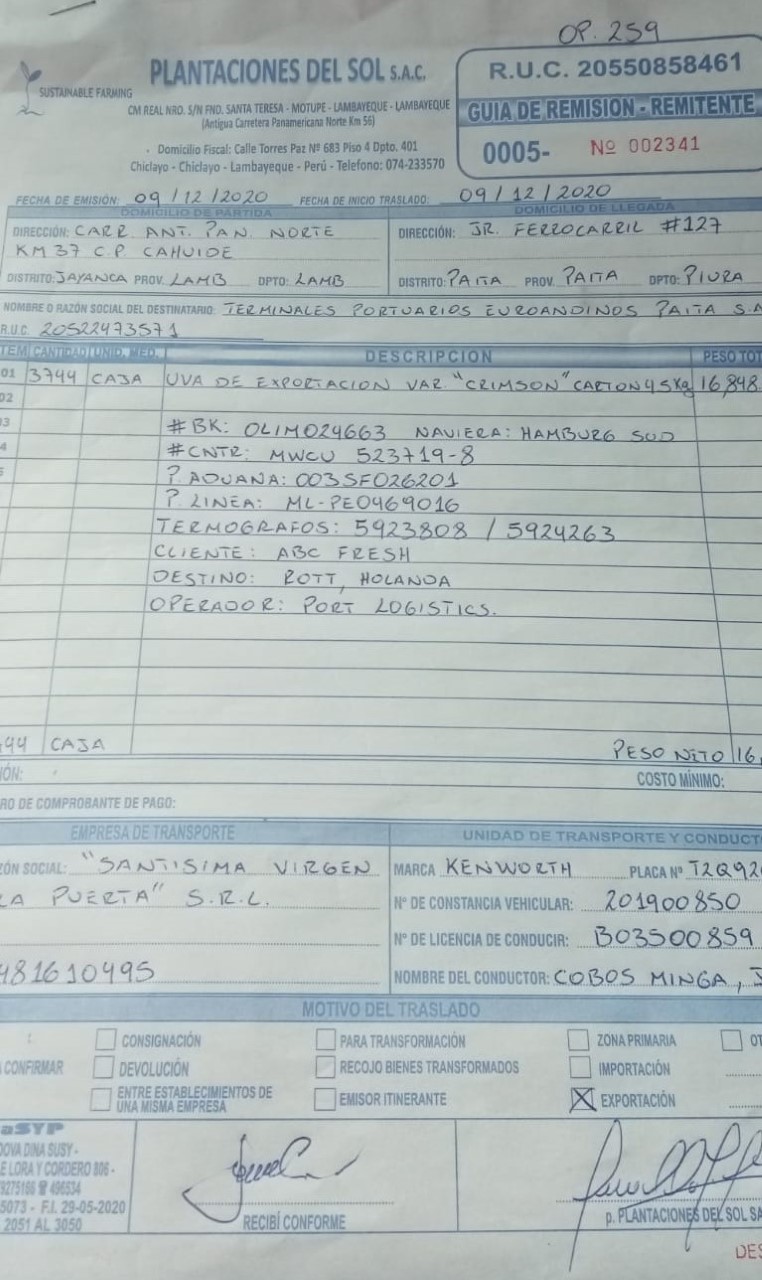 OP. 259
PLANTACIONES DEL SOL S.A.C.
SUSTAINABLE FARMING
CM REAL NRO. S/N FND. SANTA TERESA - MOTUPE - LAMBAYEQUE - LAMBAYEQUE
(Antigua Carretera Panamericana Norte Km 56)
Domicilio Fiscal: Calle Torres Paz Nº 683 Piso 4 Dpto. 401
Chiclayo - Chiclayo - Lambayeque - Perú - Telefono: 074-233570
R.U.C. 20550858461
GUIA DE REMISION - REMITENTE
0005- Nº 002341
FECHA DE EMISIÓN: 09/12/2020 FECHA DE INICIO TRASLADO: 09/12/2020
DOMICILIO DE PARTIDA
DIRECCIÓN: CARR. ANT. PAN. NORTE
KM 37 C.P. CAHUIDE
DISTRITO: JAYANCA PROV. LAMB DPTO: LAMB
DOMICILIO DE LLEGADA
DIRECCIÓN: JR. FERROCARRIL #127
DISTRITO: PAITA PROV. PAITA DPTO: PIURA
NOMBRE O RAZÓN SOCIAL DEL DESTINATARIO: TERMINALES PORTUARIOS EUROANDINOS PAITA S.A
R.U.C. 20522473571
TEM CANTIDAD UNID. MED. DESCRIPCION PESO TOT
01 3744 CAJA UVA DE EXPORTACION VAR. "CRIMSON" CARTON 4.5 Kg 16,848
02
3 #BK: OLIM024663 NAVIERA: HAMBURG SUD
4 #CNTR: MWCU 523719-8
P. ADUANA: 003SF026201
P. LINEA: ML-PE0469016
TERMOGRAFOS: 5923808 / 5924263
CLIENTE: ABC FRESH
DESTINO: ROTT, HOLANDA
OPERADOR: PORT LOGISTICS.
44 CAJA PESO NETO 16,
IÓN: COSTO MÍNIMO:
RO DE COMPROBANTE DE PAGO:
EMPRESA DE TRANSPORTE
ZÓN SOCIAL: "SANTISIMA VIRGEN
LA PUERTA" S.R.L.
481610495
UNIDAD DE TRANSPORTE Y CONDUCTO
MARCA KENWORTH PLACA Nº T2Q92
Nº DE CONSTANCIA VEHICULAR: 201900850
Nº DE LICENCIA DE CONDUCIR: B03500859
NOMBRE DEL CONDUCTOR: COBOS MINGA, J
MOTIVO DEL TRASLADO
: CONSIGNACIÓN PARA TRANSFORMACIÓN ZONA PRIMARIA OT
CONFIRMAR DEVOLUCIÓN RECOJO BIENES TRANSFORMADOS IMPORTACIÓN
ENTRE ESTABLECIMIENTOS DE
UNA MISMA EMPRESA EMISOR ITINERANTE X EXPORTACIÓN
aSYP
DOVA DINA SUSY -
E LORA Y CORDERO 806 -
496534
5073 - F.I. 29-05-2020
2051 AL 3050
RECIBÍ CONFORME
p. PLANTACIONES DEL SOL SA
DES